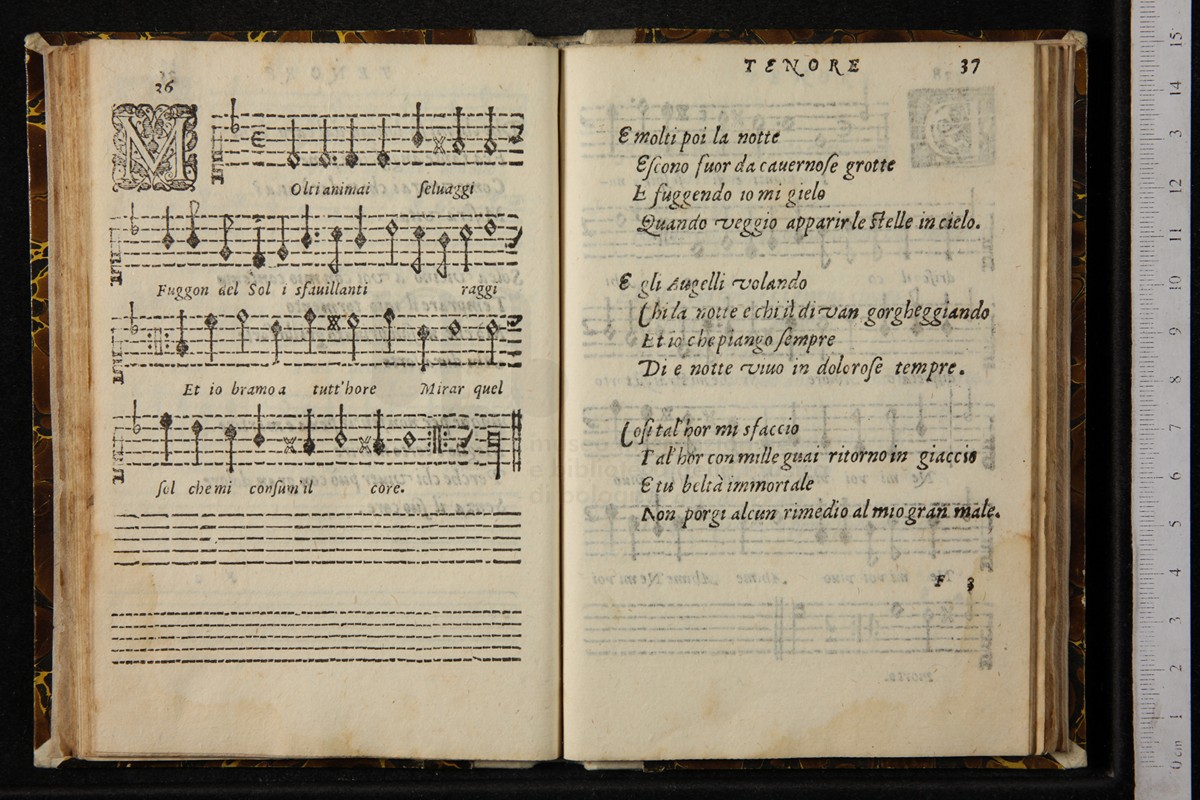 36
M Olti animai seluaggi
Fuggon del Sol i sfauillanti raggi
Et io bramo a tutt'hore Mirar quel
sol che mi consum'il core.
TENORE 37
E molti poi la notte
Escono fuor da cauernose grotte
E fuggendo io mi gielo
Quando veggio apparir le stelle in cielo.
E gli Augelli volando
Chi la notte e chi il di van gorgheggiando
Et io che piango sempre
Di e notte viuo in dolorose tempre.
Cosi tal'hor mi sfaccio
Tal'hor con mille guai ritorno in giaccio
E tu beltà immortale
Non porgi alcun rimedio al mio gran male.
F 3
0 cm 1 2 3 4 5 6 7 8 9 10 11 12 13 14 15